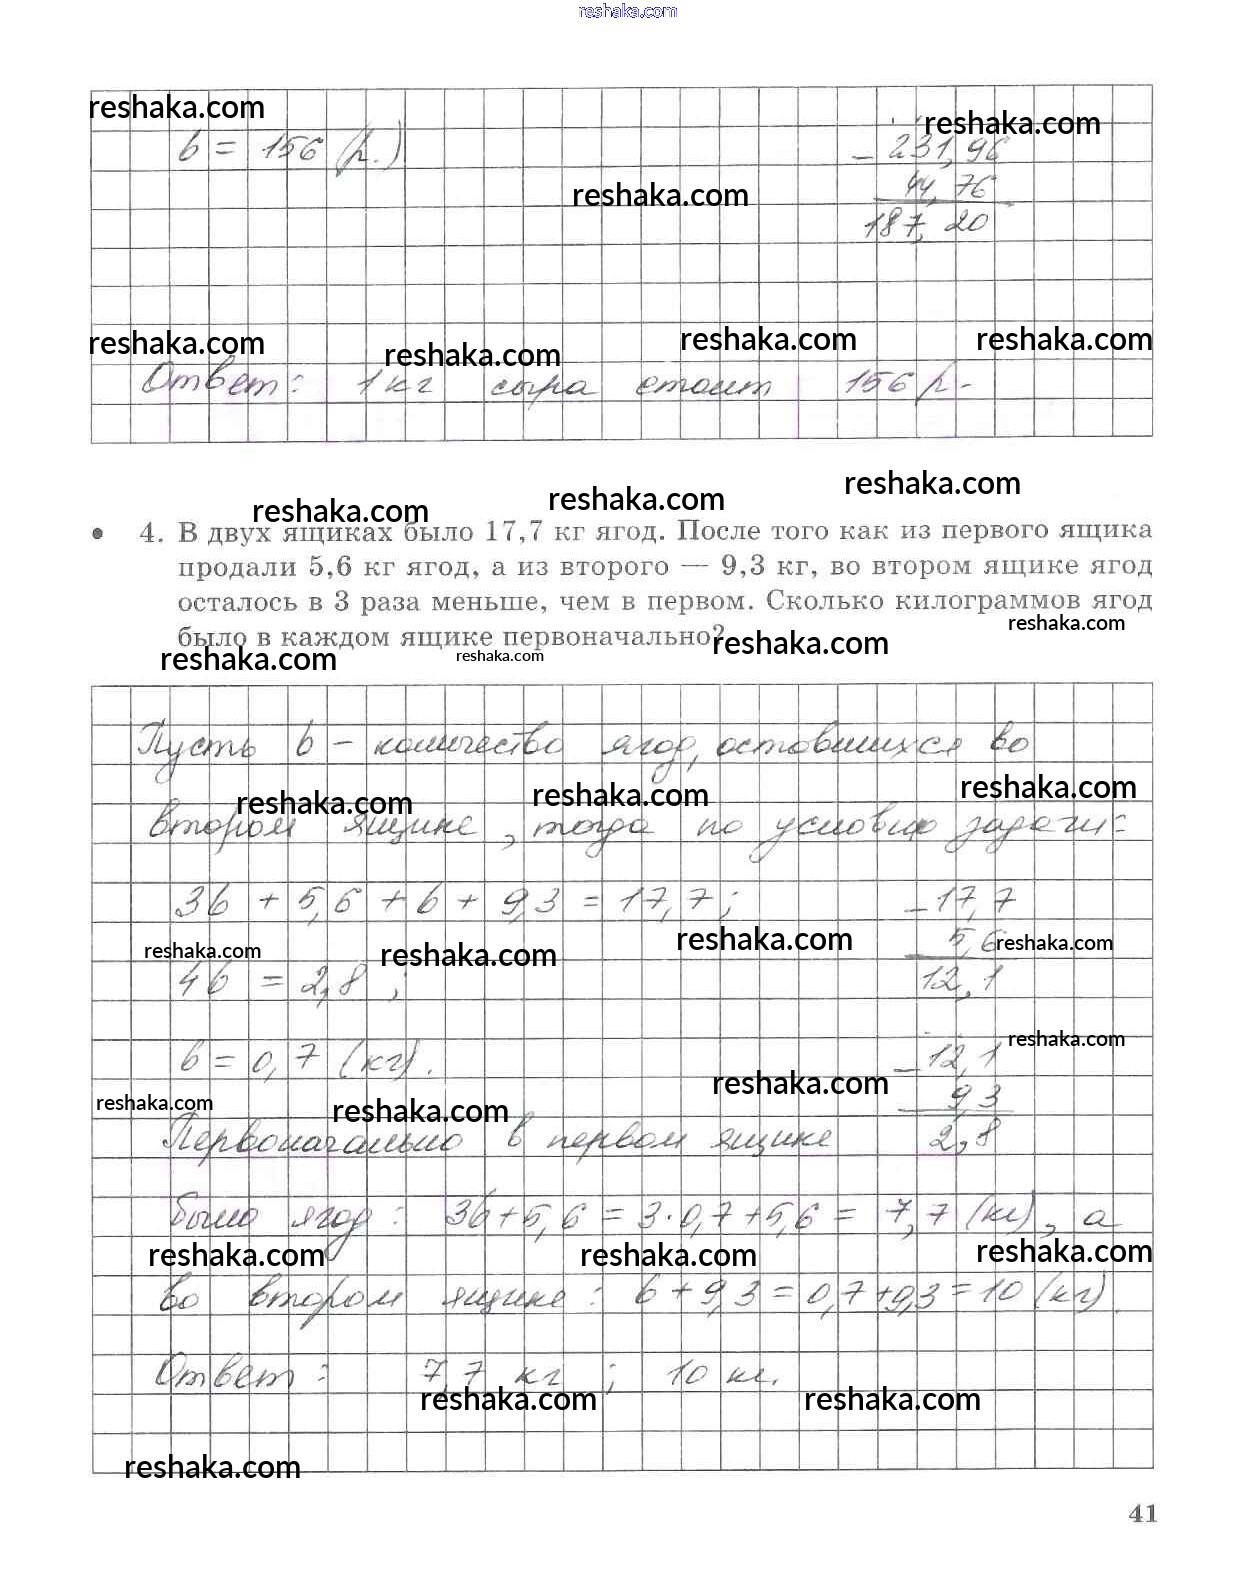 reshaka.com
reshaka.com
reshaka.com
b = 156 (р.)
- 231,96
reshaka.com
44,76
187,20
reshaka.com
reshaka.com
reshaka.com
reshaka.com
Ответ: 1 кг сыра стоит 156 р.
reshaka.com
reshaka.com
reshaka.com
• 4. В двух ящиках было 17,7 кг ягод. После того как из первого ящика
продали 5,6 кг ягод, а из второго — 9,3 кг, во втором ящике ягод
осталось в 3 раза меньше, чем в первом. Сколько килограммов ягод
было в каждом ящике первоначально?
reshaka.com
reshaka.com
reshaka.com
reshaka.com
Пусть b - количество ягод, оставшихся во
reshaka.com
reshaka.com
reshaka.com
втором ящике, тогда по условию задачи:
3b + 5,6 + b + 9,3 = 17,7;
- 17,7
5,6
12,1
reshaka.com
reshaka.com
reshaka.com
reshaka.com
4b = 2,8;
b = 0,7 (кг).
- 12,1
9,3
2,8
reshaka.com
reshaka.com
reshaka.com
reshaka.com
Первоначально в первом ящике
было ягод: 3b+5,6 = 3·0,7+5,6 = 7,7 (кг), а
reshaka.com
reshaka.com
reshaka.com
во втором ящике: b + 9,3 = 0,7+9,3 = 10 (кг).
Ответ: 7,7 кг; 10 кг.
reshaka.com
reshaka.com
reshaka.com
41